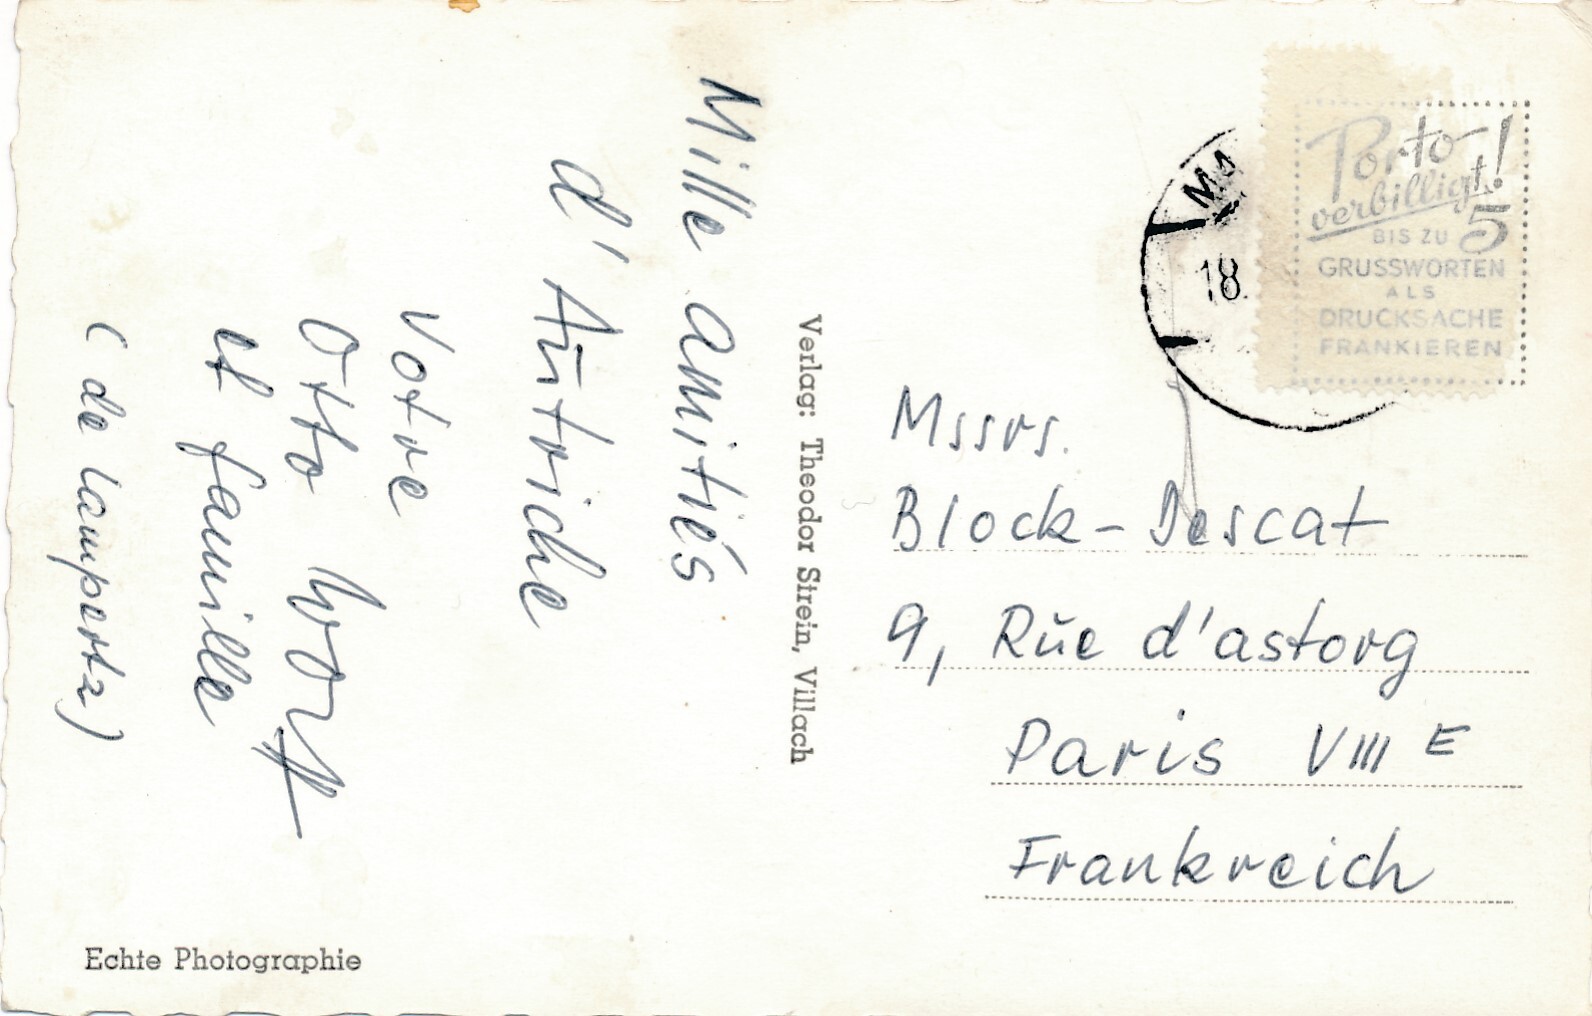 Mille amitiés
d'Autriche
Votre
Otto Wolff
et famille
(de Lampertz)
Verlag: Theodor Strein, Villach
Echte Photographie
18.
Porto
verbilligt!
BIS ZU 5
GRUSSWORTEN
ALS
DRUCKSACHE
FRANKIEREN
Mssrs.
Block-Descat
9, Rue d'astorg
Paris VIII E
Frankreich